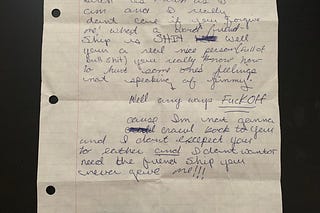 am and I really
dont care if you forgive
me! what a
ship is SHIT Well
your a real nice person (full of
bull shit) you really know how
to hurt some ones feelings
not speaking of
Well any ways FUCK OFF
cause Im not gonna
crawl back to you
and I dont excepect you
to eather and I dont want or
need the friend ship you
never gave me!!!